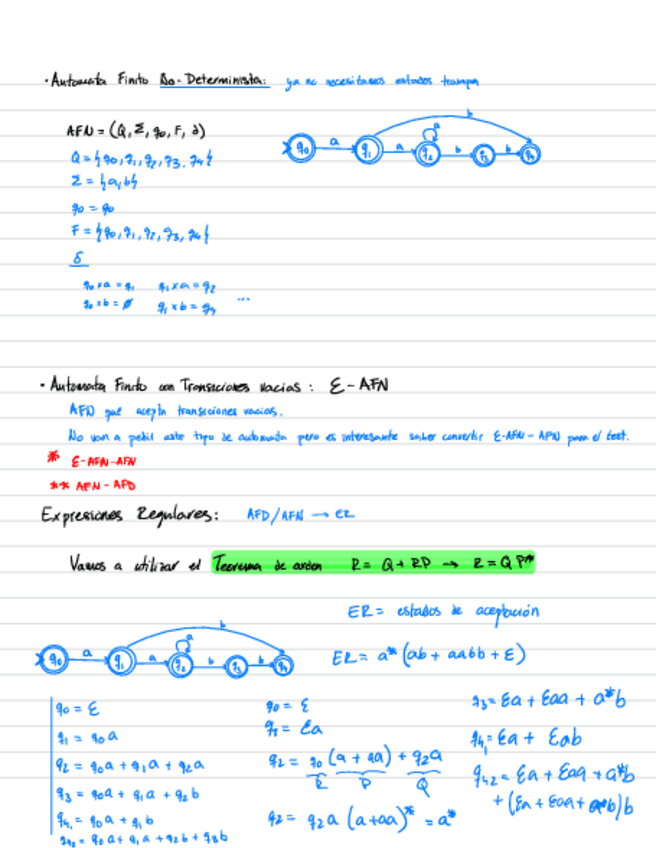 · Automata Finito No-Determinista: ya no necesitamos estados trampa
AFN = (Q, Σ, q0, F, δ)
Q = {q0, q1, q2, q3, q4}
Σ = {a, b}
q0 = q0
F = {q0, q1, q2, q3, q4}
δ
q0 x a = q1 q1 x a = q2
q0 x b = ∅ q1 x b = q4 ...
q0 a q1 a q2 a b q3 b q4 b
· Automata Finito con Transiciones vacias: Ɛ-AFN
AFN que acepta transiciones vacias.
No van a pedir este tipo de automata pero es interesante saber convertir Ɛ-AFN - AFN para el test.
* Ɛ-AFN-AFN
** AFN-AFD
Expresiones Regulares: AFD/AFN → ER
Vamos a utilizar el Teorema de arden R = Q + RP → R = QP*
ER = estados de aceptación
q0 a q1 a q2 a b q3 b q4 b
ER = a* (ab + aabb + Ɛ)
q0 = Ɛ
q1 = q0a
q2 = q0a + q1a + q2a
q3 = q0a + q1a + q2b
q4₁ = q0a + q1b
q4₂ = q0a + q1a + q2b + q3b
q0 = Ɛ
q1 = Ɛa
q2 = q0 (a + aa) + q2a
R P Q
q2 = q2a (a+aa)* = a*
q3 = Ɛa + Ɛaa + a*b
q4₁ = Ɛa + Ɛab
q4₂ = Ɛa + Ɛaa + a*b
+ (Ɛa + Ɛaa + a*b)b